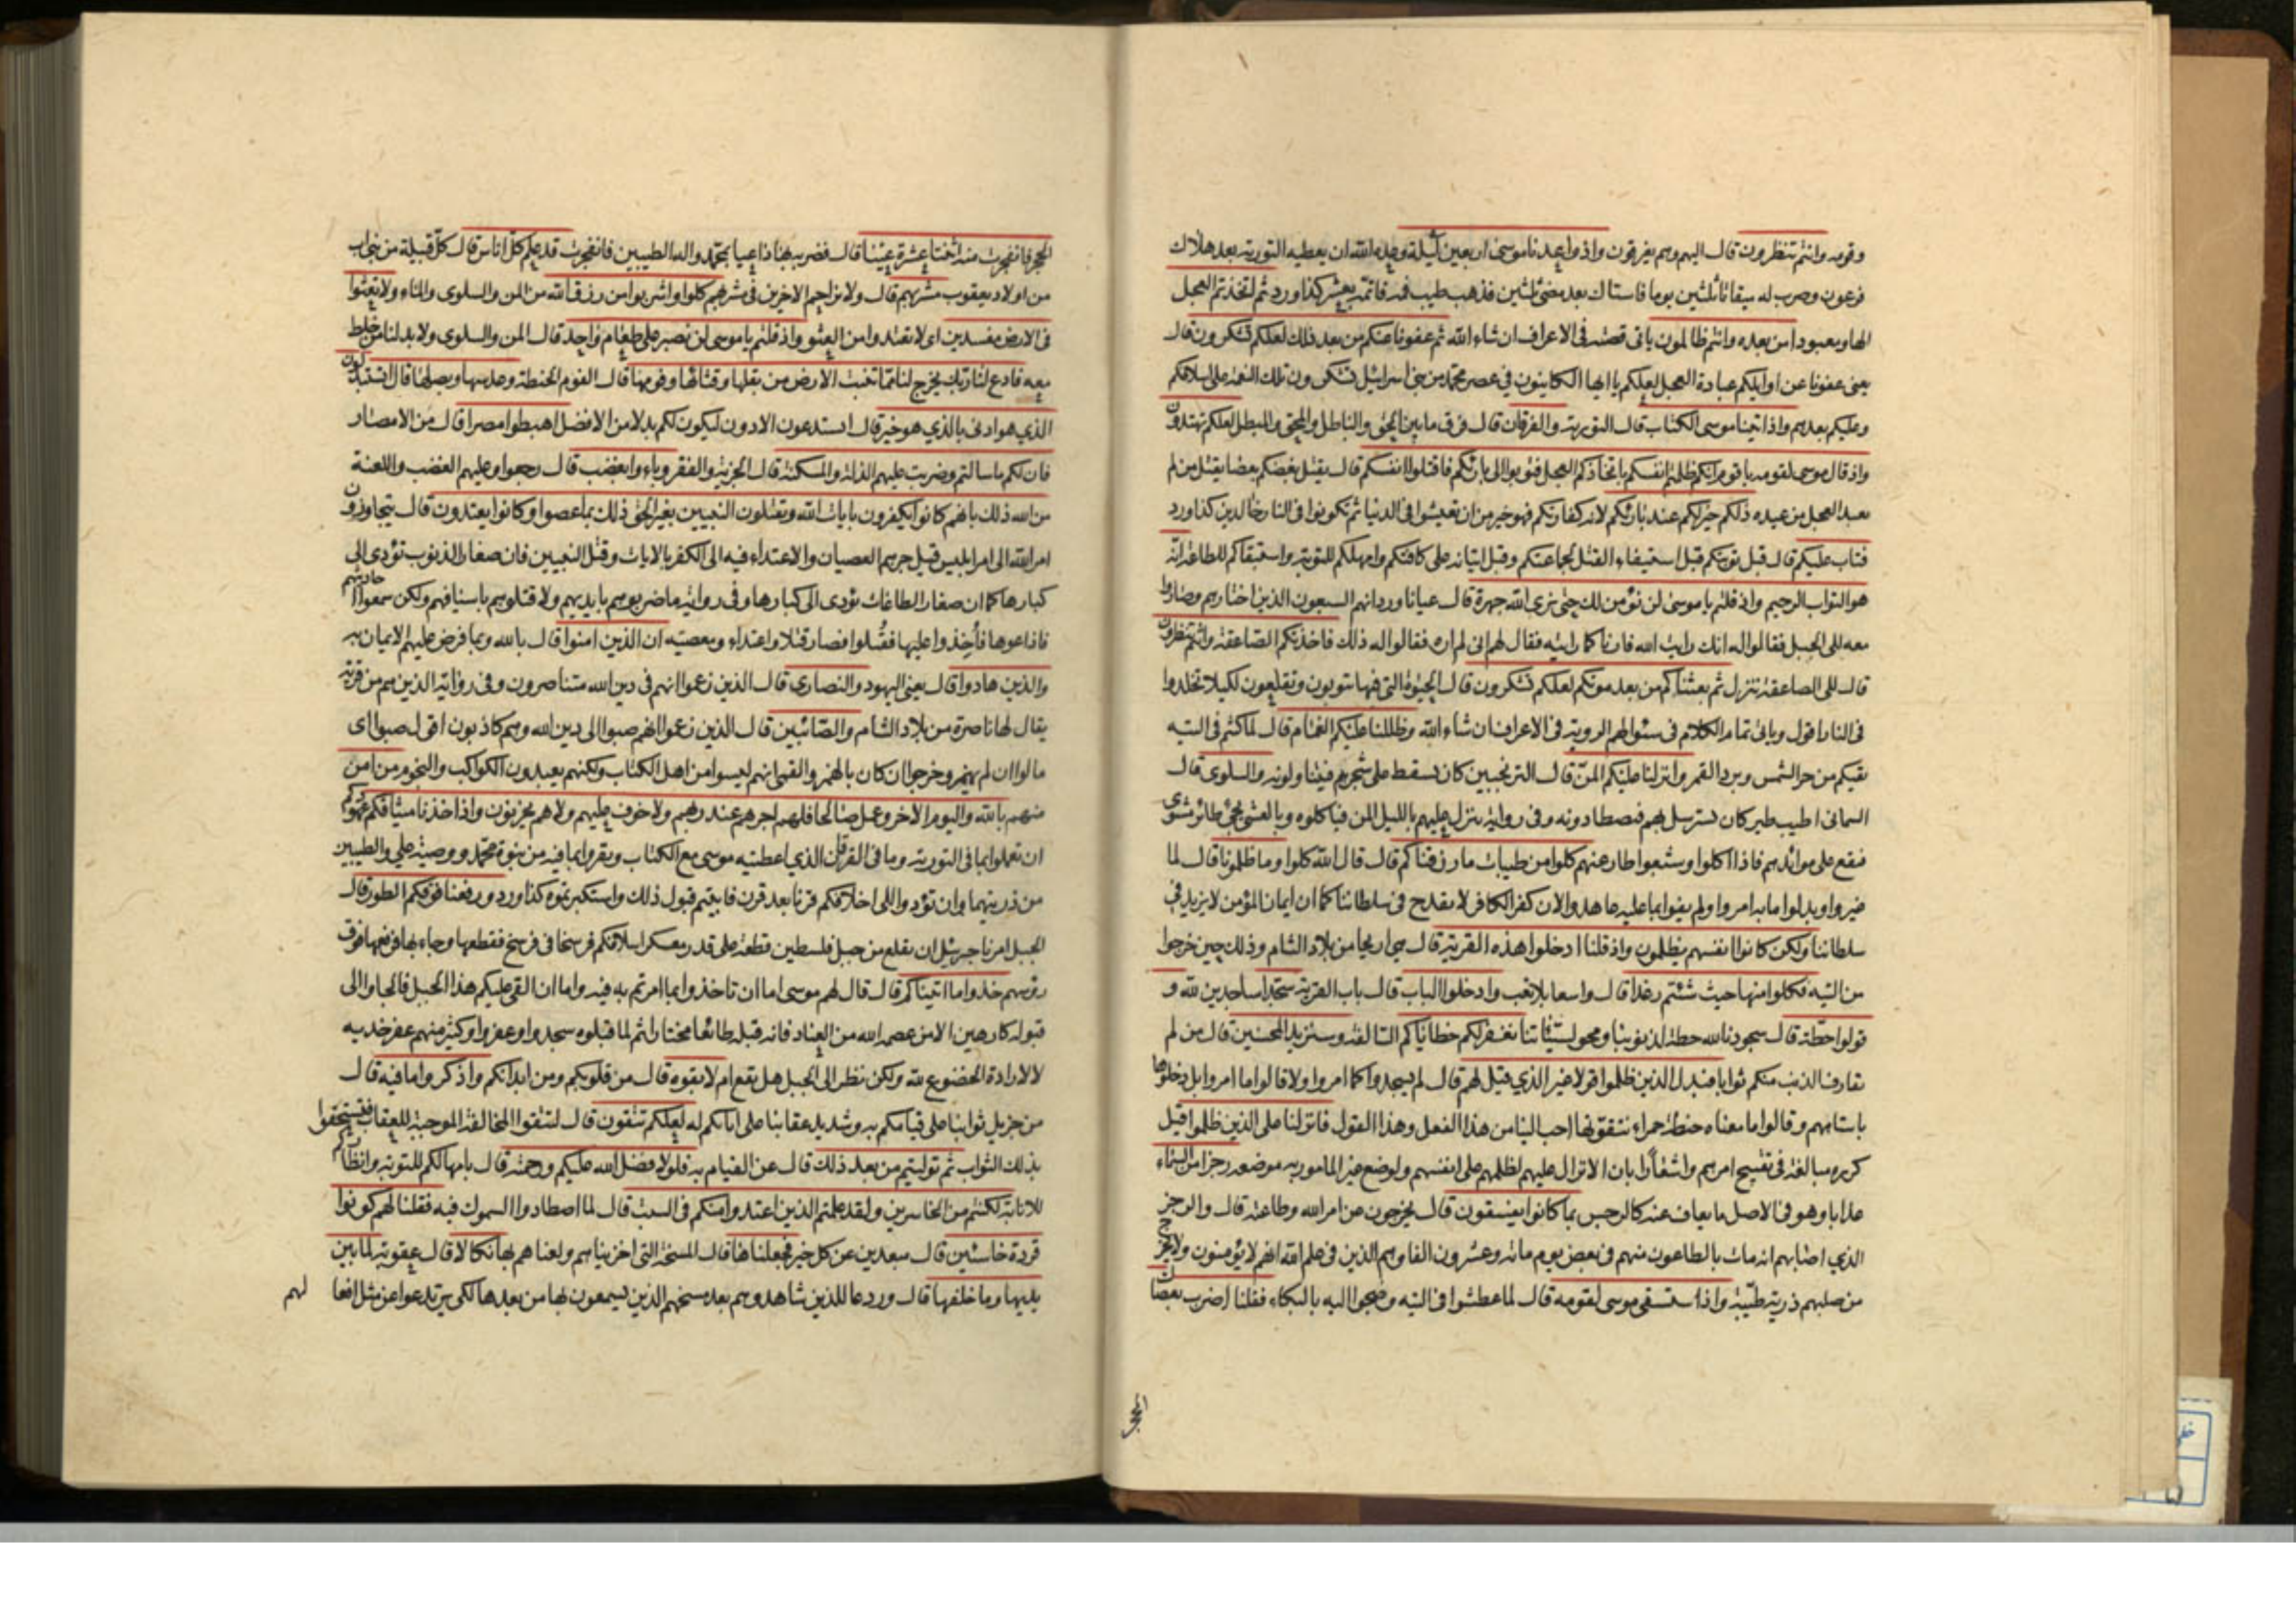 وقومه وانتم تنظرون قال اليهم وهم يغرقون واذ واعدنا موسى اربعين ليلة وعده الله ان يعطيه التورية بعد هلاك
فرعون وضرب له ميقاتا ثلثين يوما فاستاك بعد مضى ثلثين فذهب طيب فيه فاتمه بعشر كذا ورد ثم اتخذتم العجل
الها ومعبودا من بعده وانتم ظالمون ياتى قصته فى الاعراف ان شاء الله ثم عفونا عنكم من بعد ذلك لعلكم تشكرون قال
يعنى عفونا عن اوايلكم عبادة العجل لعلكم يا ايها الكاينون في عصر محمد من بنى اسرائيل تشكرون تلك النعمة على اسلافكم
وعليكم بعدهم واذ اتينا موسى الكتاب قال التورية والفرقان قال فرق ما بين الحق والباطل والمحق والمبطل لعلكم تهتدون
واذ قال موسى لقومه يا قوم انكم ظلمتم انفسكم باتخاذكم العجل فتوبوا الى بارئكم فاقتلوا انفسكم قال يقتل بعضكم بعضا يقتل من لم
يعبد العجل من عبده ذلكم خير لكم عند بارئكم لانه كفارتكم فهو خير من ان تعيشوا فى الدنيا ثم تكونوا فى النار خالدين كذا ورد
فتاب عليكم قال قبل توبتكم قبل استيفاء القتل لجماعتكم وقبل اتيانه على كافتكم وامهلكم للتوبة واستبقاكم للطاعة انه
هو التواب الرحيم واذ قلتم يا موسى لن نؤمن لك حتى نرى الله جهرة قال عيانا ورد انهم السبعون الذين اختارهم وصاروا
معه الى الجبل فقالوا له انك رايت الله فارناه كما رايته فقال لهم انى لم اره فقالوا له ذلك فاخذتكم الصاعقة وانتم تنظرون
قال الى الصاعقة تنزل ثم بعثناكم من بعد موتكم لعلكم تشكرون قال الحيوة التى فيها تتوبون وتقلعون لكيلا تخلدوا
فى النار اقول وياتى تمام الكلام فى سئوالهم الروية فى الاعراف ان شاء الله وظللنا عليكم الغمام قال لما كنتم فى التيه
يقيكم من حر الشمس وبرد القمر وانزلنا عليكم المن قال الترنجبين كان يسقط على شجرهم فيتناولونه والسلوى قال
السمانى اطيب طير كان يسترسل لهم فيصطادونه وفى رواية ينزل عليهم بالليل المن فياكلوه وبالعشى يجئ طائر مشوى
فيقع على موائدهم فاذا اكلوا وشبعوا طار عنهم كلوا من طيبات ما رزقناكم قال قال الله كلوا وما ظلمونا قال لما
غيروا وبدلوا ما به امروا ولم يفوا بما عليه عاهدوا لان كفر الكافر لا يقدح فى سلطاننا كما ان ايمان المؤمن لا يزيد في
سلطاننا ولكن كانوا انفسهم يظلمون واذ قلنا ادخلوا هذه القرية قال هى اريحا من بلاد الشام وذلك حين خرجوا
من التيه فكلوا منها حيث شئتم رغدا قال واسعا بلا تعب وادخلوا الباب قال باب القرية سجدا ساجدين لله و
قولوا حطة قال سجودنا لله حطة لذنوبنا ومحو لسيئاتنا نغفر لكم خطاياكم السالفة وسنزيد المحسنين قال من لم
يقارف الذنب منكم ثوابا فبدل الذين ظلموا قولا غير الذي قيل لهم قال لم يسجدوا كما امروا ولا قالوا ما امروا بل دخلوها
باستاههم وقالوا ما معناه حنطة حمراء نتقوتها احب الينا من هذا الفعل وهذا القول فانزلنا على الذين ظلموا قيل
كرره مبالغة فى تقبيح امرهم واشعارا بان الانزال عليهم لظلمهم على انفسهم ولوضع غير المامور به موضعه رجزا من السماء
عذابا وهو فى الاصل ما يعاف عنه كالرجس بما كانوا يفسقون قال يخرجون من امر الله وطاعته قال والرجز
الذي اصابهم انه مات بالطاعون منهم فى بعض يوم مائة وعشرون الفا وهم الذين فى علم الله انهم لا يؤمنون ولا يخرج
من صلبهم ذرية طيبة واذ استسقى موسى لقومه قال لما عطشوا فى التيه وضجوا اليه بالبكاء فقلنا اضرب بعصاك
الحجر
الحجر فانفجرت منه اثنتا عشرة عينا قال فضربه بها داعيا بمحمد واله الطيبين فانفجرت قد علم كل اناس قال كل قبيلة من بنى اب
من اولاد يعقوب مشربهم قال ولا يزاحم الاخرين فى شربهم كلوا واشربوا من رزق الله من المن والسلوى والماء ولا تعثوا
فى الارض مفسدين اى لا تعتدوا من العثو واذ قلتم يا موسى لن نصبر على طعام واحد قال المن والسلوى ولا بد لنا من خلط
معه فادع لنا ربك يخرج لنا مما تنبت الارض من بقلها وقثائها وفومها قال الفوم الحنطة وعدسها وبصلها قال اتستبدلون
الذي هو ادنى بالذي هو خير قال استدعون الادون ليكون لكم بدلا من الافضل اهبطوا مصرا قال من الامصار
فان لكم ما سالتم وضربت عليهم الذلة والمسكنة قال الجزية والفقر وباءوا بغضب قال رجعوا وعليهم الغضب واللعنة
من الله ذلك بانهم كانوا يكفرون بايات الله ويقتلون النبيين بغير الحق ذلك بما عصوا وكانوا يعتدون قال يتجاوزون
امر الله الى امر ابليس قيل جرهم العصيان والاعتداء فيه الى الكفر بالايات وقتل النبيين فان صغار الذنوب تؤدى الى
كبارها كما ان صغار الطاعات تؤدى الى كبارها وفى رواية ما ضربوهم بايديهم ولا قتلوهم باسيافهم ولكن سمعوا احاديثهم
فاذاعوها فاخذوا عليها فقتلوا فصار قتلا واعتداء ومعصية ان الذين امنوا قال بالله وبما فرض عليهم الايمان به
والذين هادوا قال يعنى اليهود والنصارى قال الذين زعموا انهم فى دين الله متناصرون وفى رواية الذين هم من قرية
يقال لها ناصرة من بلاد الشام والصائبين قال الذين زعموا انهم صبوا الى دين الله وهم كاذبون اقول صبوا اى
مالوا ان لم يهمز وخرجوا ان كان بالهمز والقمى انهم ليسوا من اهل الكتاب ولكنهم يعبدون الكواكب والنجوم من امن
منهم بالله واليوم الاخر وعمل صالحا فلهم اجرهم عند ربهم ولا خوف عليهم ولا هم يحزنون واذ اخذنا ميثاقكم عهودكم
ان تعملوا بما فى التورية وما فى الفرقان الذي اعطيته موسى مع الكتاب وتقروا بما فيه من نبوة محمد ووصية علي والطيبين
من ذريتهما وان تؤدوا الى اخلافكم قرنا بعد قرن فابيتم قبول ذلك واستكبرتموه كذا ورد ورفعنا فوقكم الطور قال
الجبل امرنا جبرئيل ان يقلع من جبل فلسطين قطعة على قدر معسكر اسلافكم فرسخا فى فرسخ فقطعها وجاء بها فرفعها فوق
رؤسهم خذوا ما اتيناكم قال قال لهم موسى اما ان تاخذوا بما امرتم به فيه واما ان القى عليكم هذا الجبل فالجاوا الى
قبوله كارهين الا من عصمه الله من العناد فانه قبله طائعا مختارا ثم لما قبلوه سجدوا وعفروا وكثير منهم عفر خديه
لا لارادة الخضوع لله ولكن نظر الى الجبل هل يقع ام لا بقوة قال من قلوبكم ومن ابدانكم واذكروا ما فيه قال
من جزيل ثوابنا على قيامكم به وشديد عقابنا على ابائكم له لعلكم تتقون قال لتتقوا المخالفة الموجبة للعقاب فتستحقوا
بذلك الثواب ثم توليتم من بعد ذلك قال عن القيام به فلولا فضل الله عليكم ورحمته قال بامهالكم للتوبة وانظاركم
للانابة لكنتم من الخاسرين ولقد علمتم الذين اعتدوا منكم فى السبت قال لما اصطادوا السموك فيه فقلنا لهم كونوا
قردة خاسئين قال مبعدين عن كل خير فجعلناها قال المسخة التى اخزيناهم ولعناهم بها نكالا قال عقوبة لما بين
يديها وما خلفها قال وردعا للذين شاهدوهم بعد مسخهم الذين يسمعون بها من بعدها لكى يرتدعوا عن مثل افعا
لهم